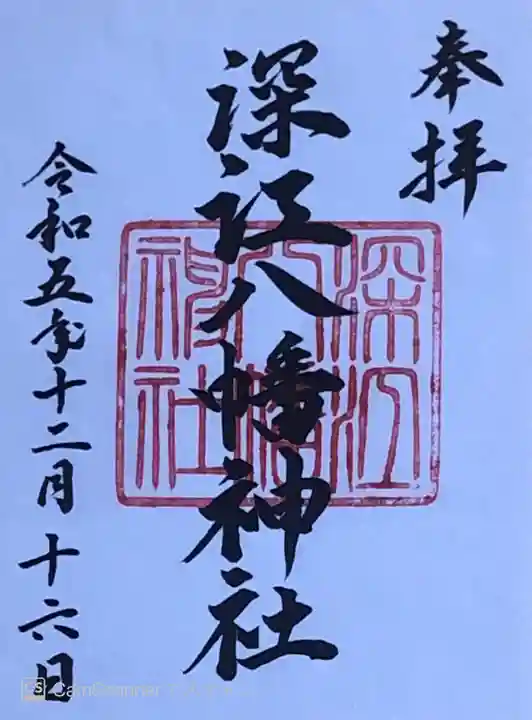 奉拝
深江八幡神社
深江
八幡
神社
令和五年十二月十六日
CS CamScanner